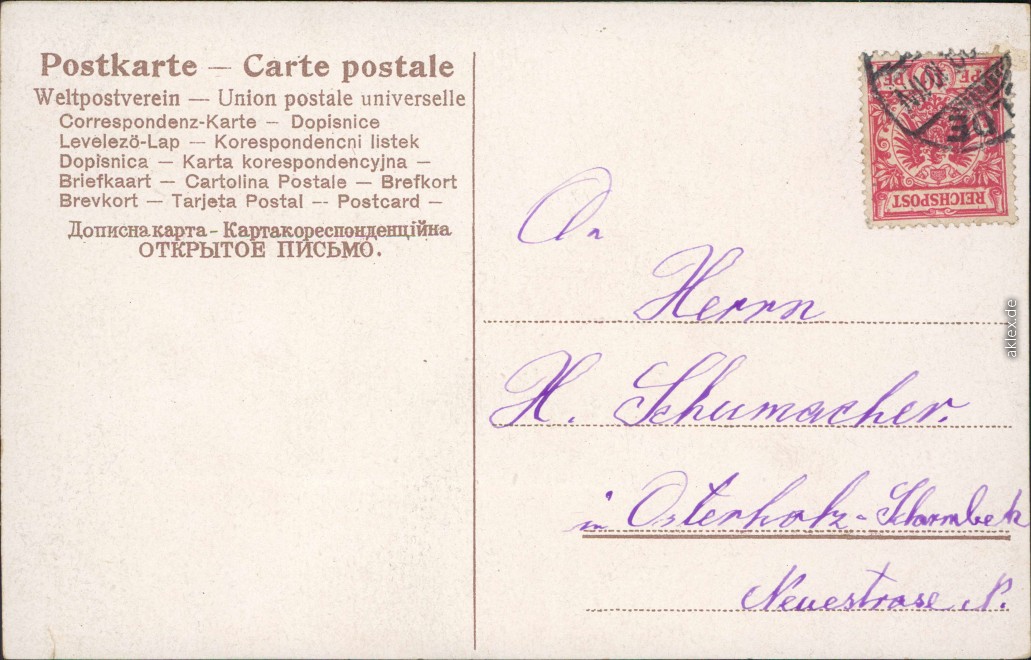 Postkarte — Carte postale
Weltpostverein — Union postale universelle
Correspondenz-Karte — Dopisnice
Levelező-Lap — Korespondencni listek
Dopisnica — Karta korespondencyjna —
Briefkaart — Cartolina Postale — Brefkort
Brevkort — Tarjeta Postal -- Postcard —
Дописна карта - Картакореспонденційна
ОТКРЫТОЕ ПИСЬМО.
REICHSPOST
An
Herrn
H. Schumacher.
in Osterholz-Scharmbek
Neuestrase N.
aklex.de